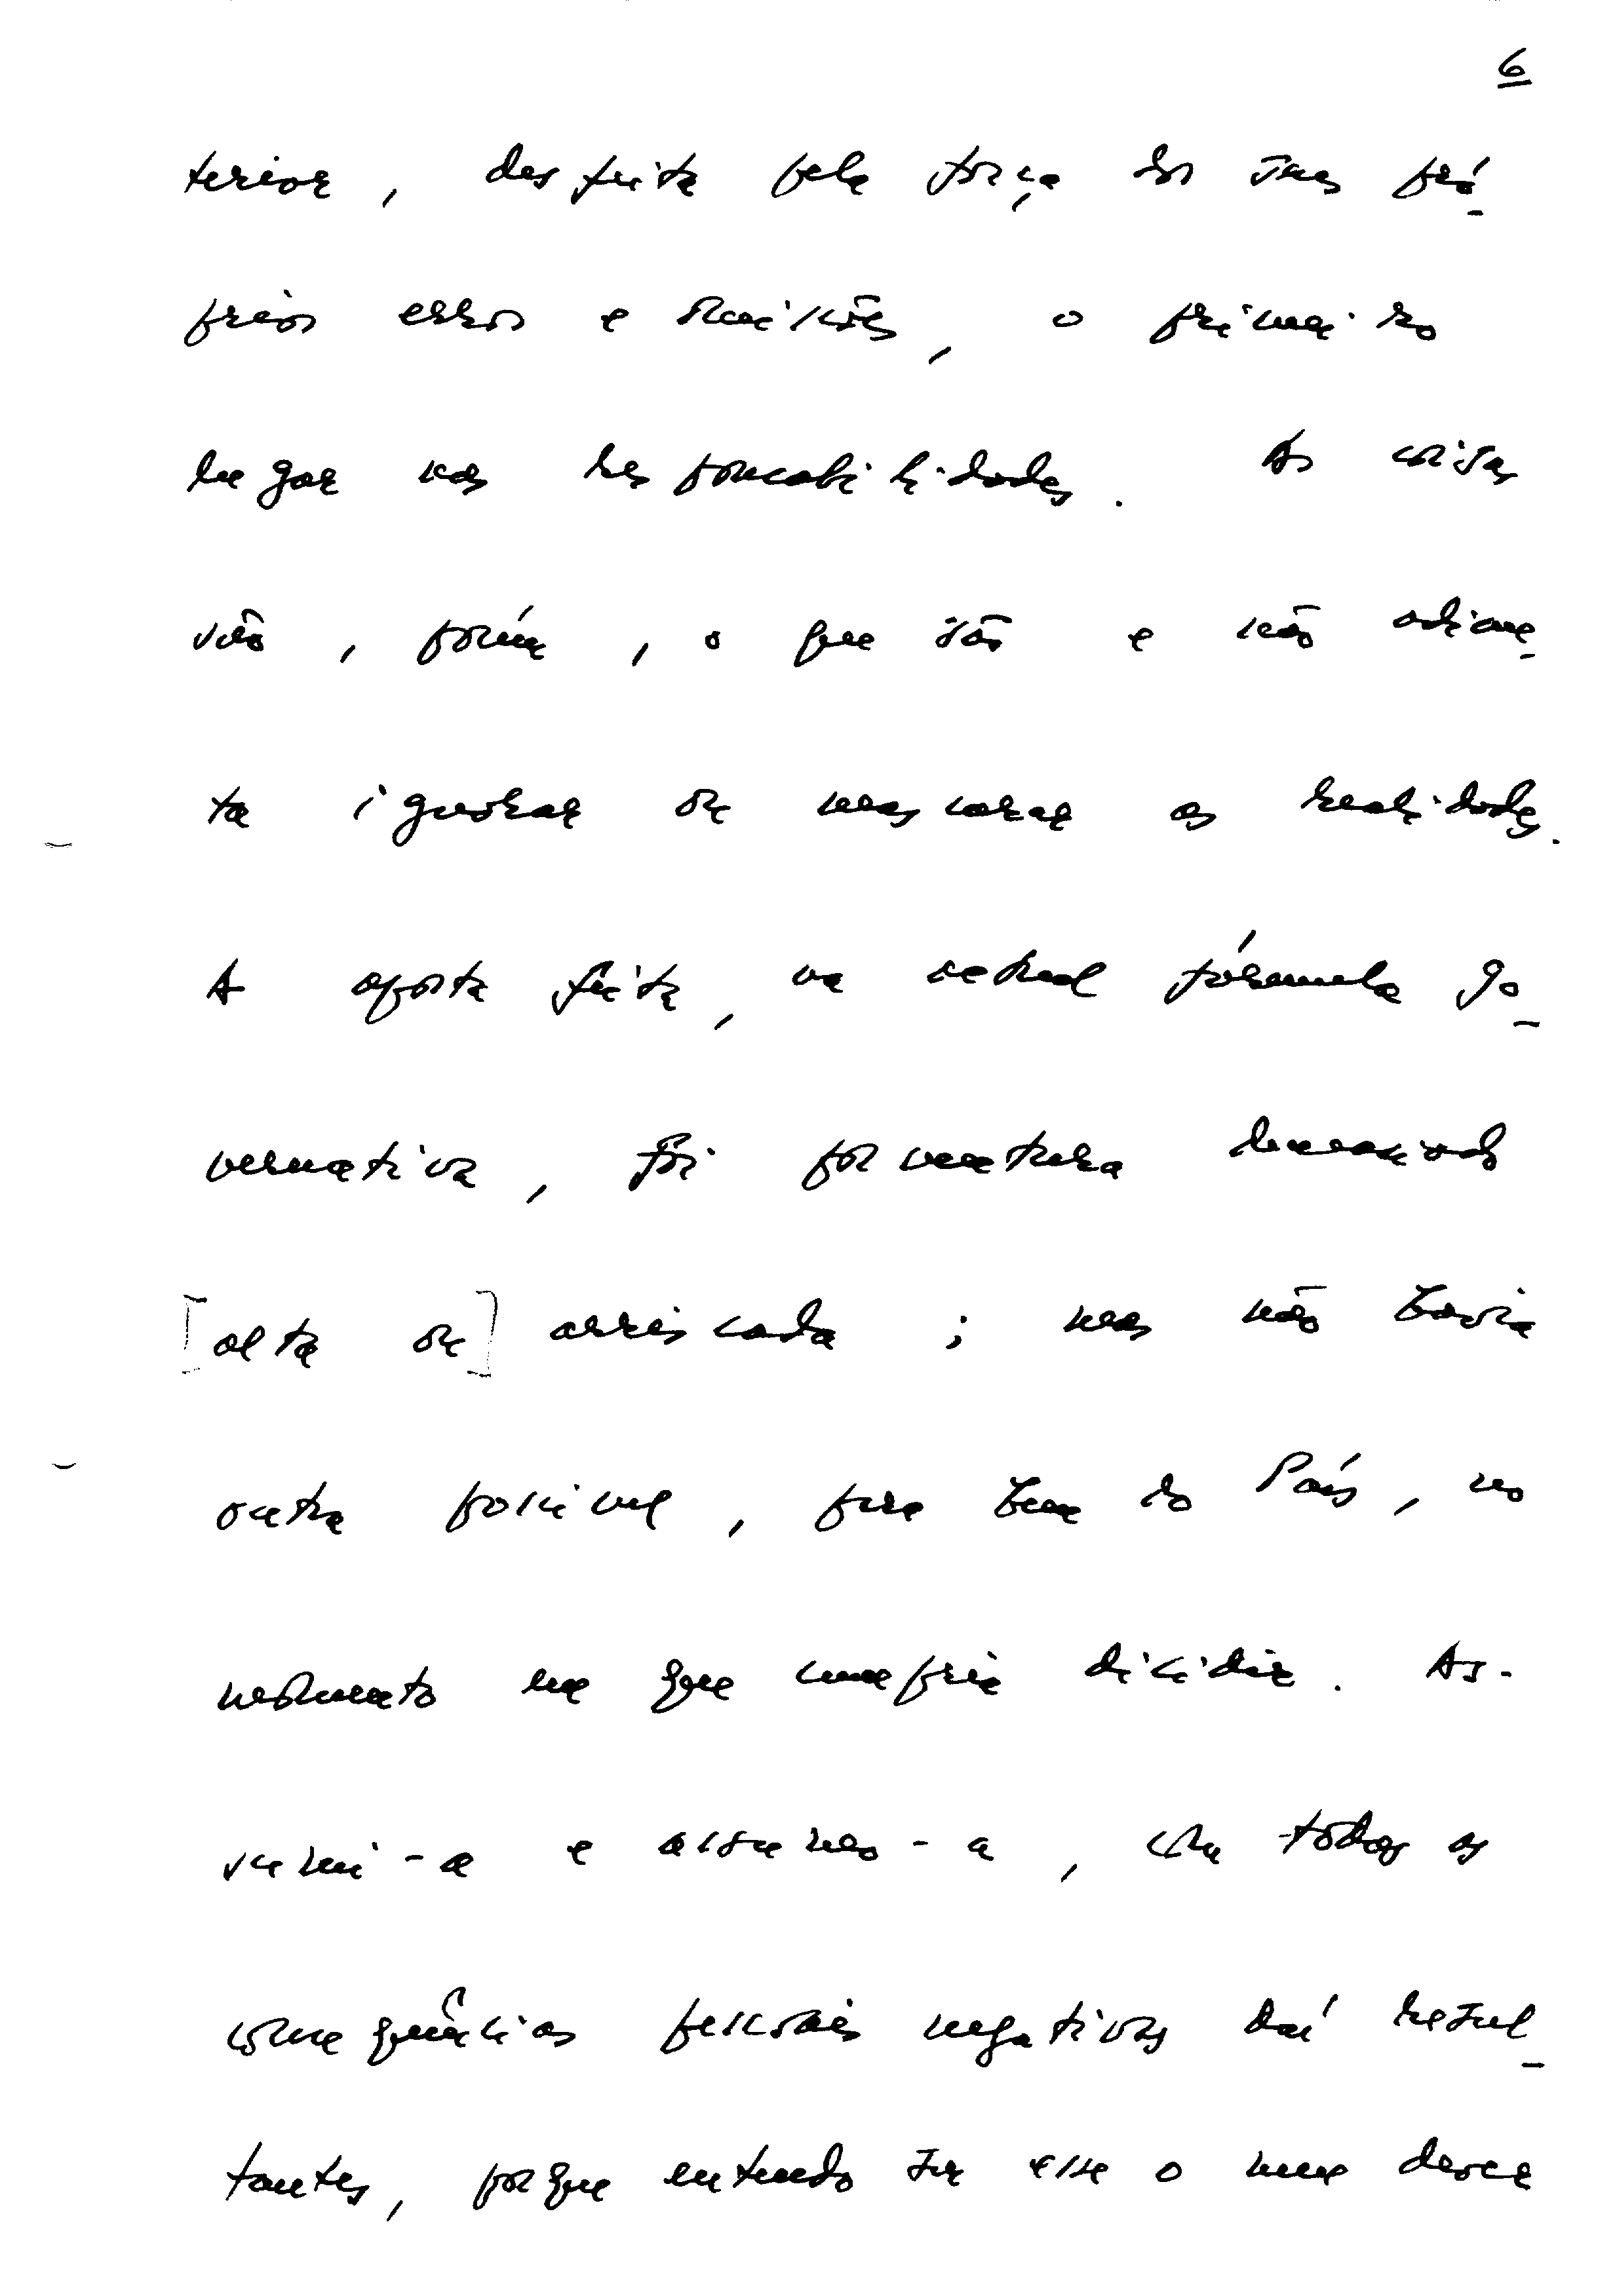 6
terior, desfeita pela força dos seus pró-
prios erros e omissões, o primeiro
lugar nas responsabilidades. As coisas
são, porém, o que são e não adian-
ta ignorar ou mascarar as realidades.
A aposta feita, na actual fórmula go-
vernativa, foi porventura demasiado
[alta ou] arriscada ; mas não havia
outra possível, para bem do País, no
momento em que cumpria decidir. As-
sumi-a e assumo-a, com todas as
consequências pessoais negativas daí resul-
tantes, porque entendo ser esse o meu dever